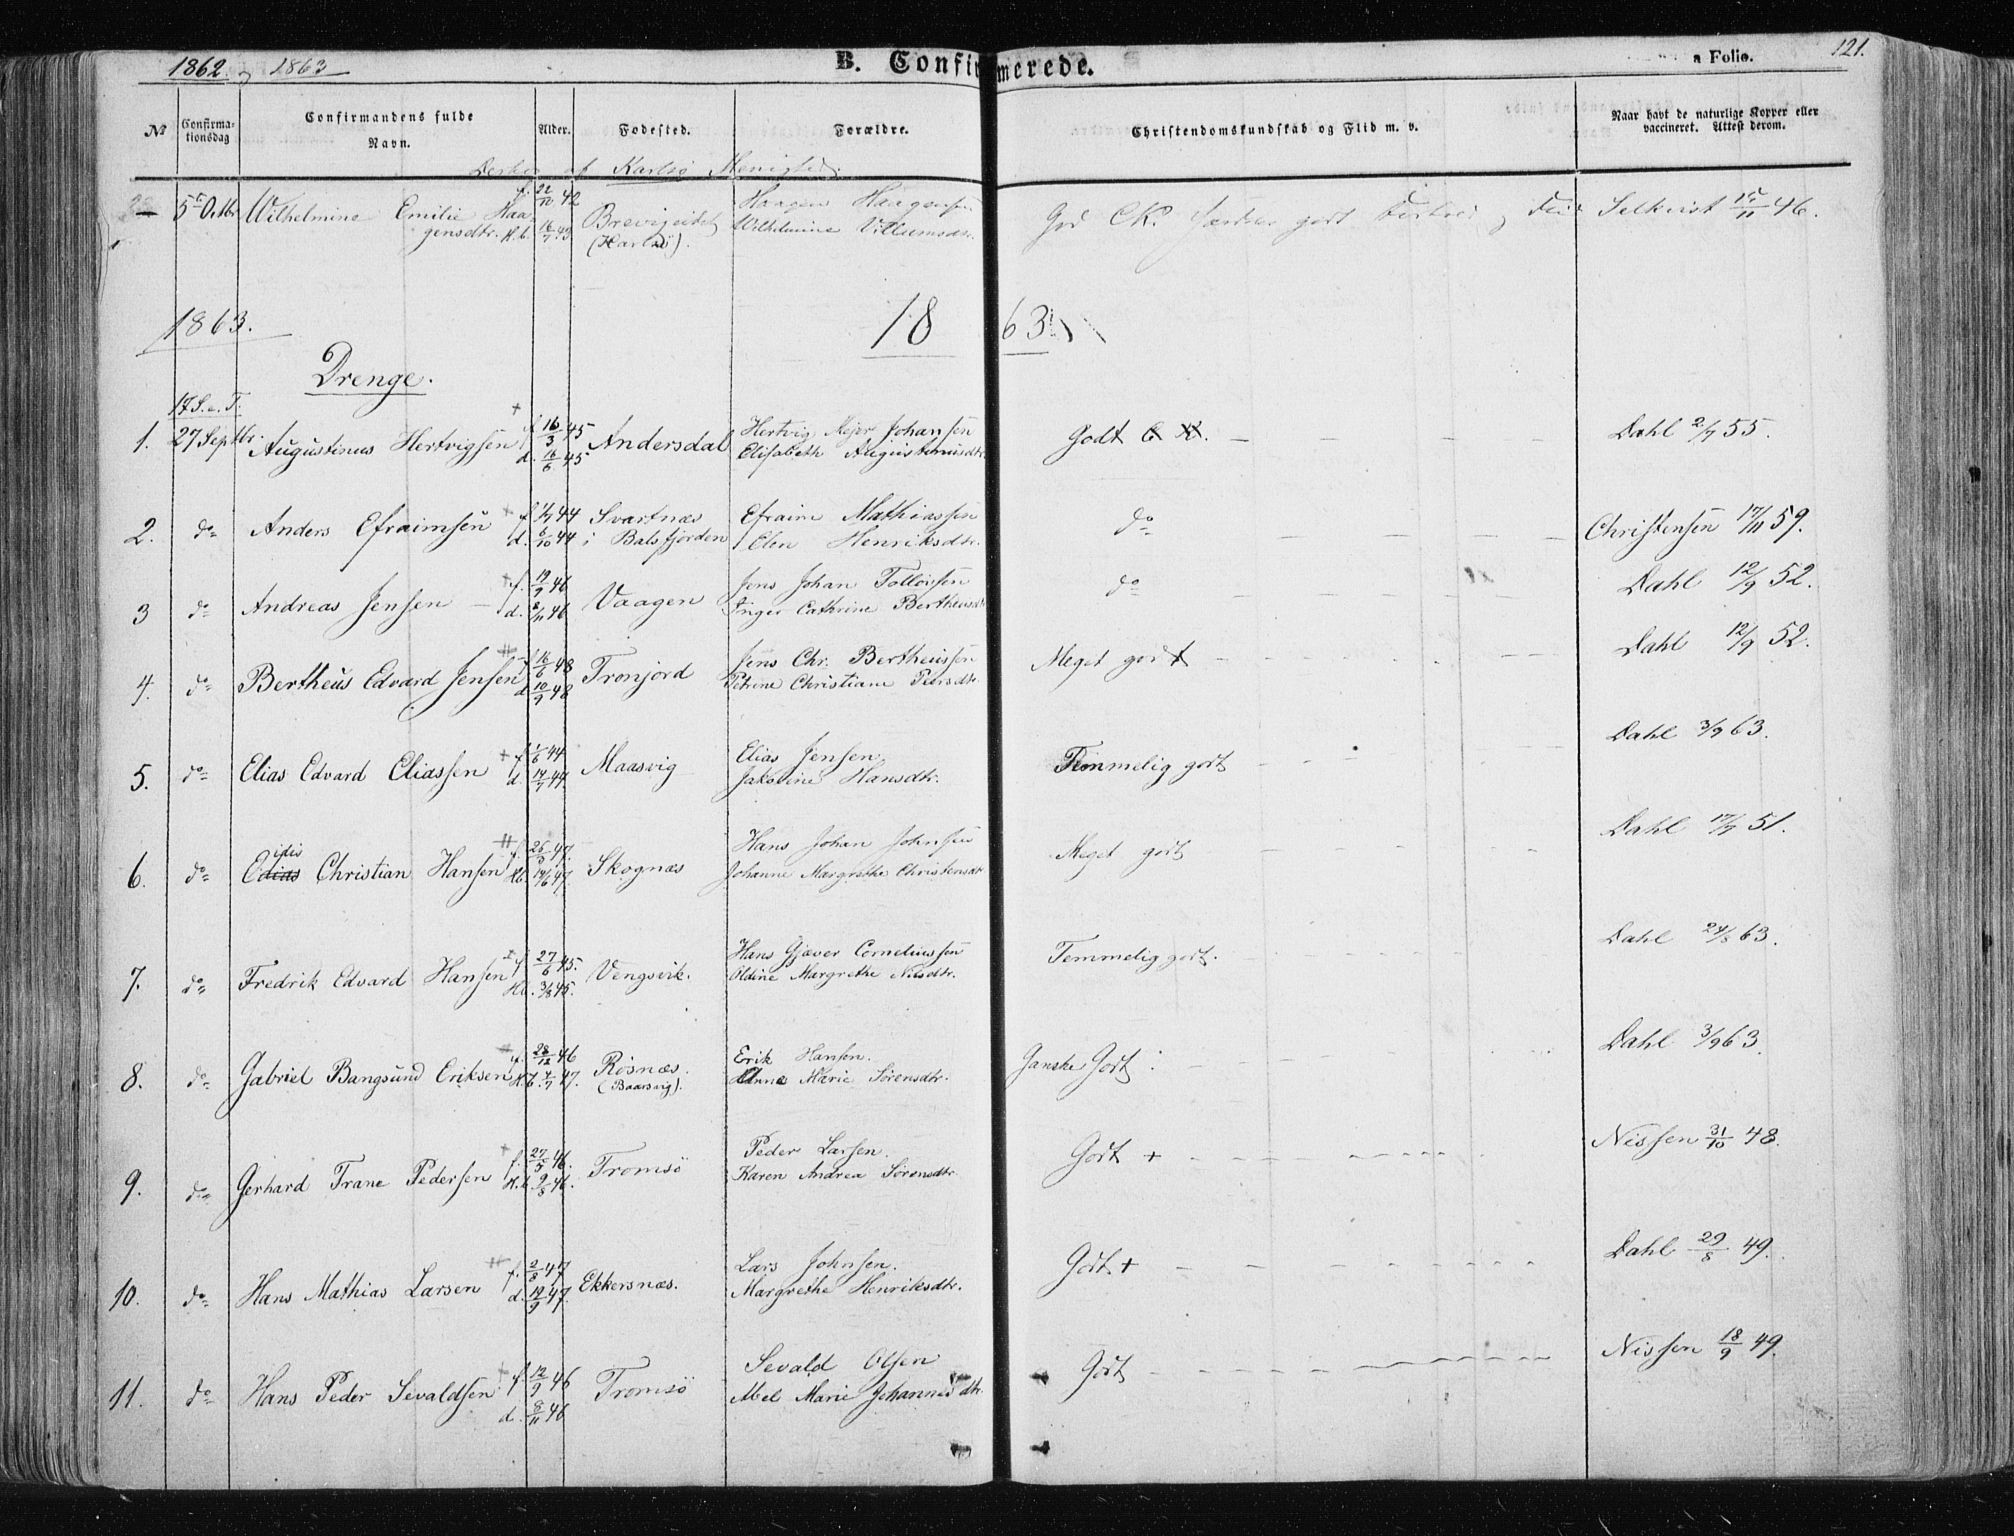 1862. og 1863
B. Confirmerede.
a Folio. 121.
No Confirmationsdag Confirmandens fulde Navn. Alder. Fødested. Forældre. Christendomskundskab og Flid m. v. Naar havt de naturlige Kopper eller vaccineret. Attest derom.
af Karlsø Menighed
— 5 Octbr Wilhelmine Emilie Haa- f. 22/10 42 Brevigeidet Haagen Haagensen God CK. godt Selkvist 15/11 46.
gensdtr. H.b. 16/7 43 (Karlsø). Wilhelmine Villumsdtr.
1863. 1863
Drenge.
17 S. e. T.
1. 27 Septbr. Augustinus Hertvigsen f. 16/3 45 Andersdal Hertvig Mejer Johansen Godt Dahl 2/7 55.
d. 16/6 45 Elisabeth Augustinusdtr.
2. do Anders Efraimsen f. 1/7 44 Svartnæs Efraim Mathiassen do Christensen 17/11 59.
d. 6/10 44 i Balsfjorden Elen Henriksdtr.
3 do Andreas Jensen — f. 19/9 46 Vaagen Jens Johan Tollevsen do Dahl 12/9 52.
d. 2/11 46 Inger Cathrine Bertheusdtr
4. do Bertheus Edvard Jensen f. 16/6 48 Tronjord Jens Chr. Bertheussen Meget godt Dahl 12/9 52.
d. 10/9 48 Petrine Christiane Pedersdtr.
5. do Elias Edvard Eliassen f. 1/6 44 Maasvig Elias Jensen Temmelig godt Dahl 3/9 63.
d. 14/7 44. Jakobine Hansdtr.
6. do Christian Hansen f. 26/3 47. Skognæs Hans Johan Johnsen Meget godt Dahl 17/7 51.
Hb. 14/6 47. Johanne Margrethe Christensdtr
7. do Fredrik Edvard Hansen f. 27/6 45. Vengsvik. Hans Gjæver Corneliussen Temmelig godt. Dahl 24/8 63.
Hb. 3/8 45. Oldine Margrethe Nilsdtr.
8. do Gabriel Bangsund Eriksen f. 28/12 46 Røsnæs. Erik Hansen. Ganske Godt. Dahl 3/9 63.
H.b. 4/7 47. (Baarsvig). Anne Marie Sørensdtr.
9. do Gerhard Trane Pedersen f. 27/5 46. Tromsö Peder Larsen. Godt + Nissen 31/10 48.
H.b. 9/8 46. Karen Andrea Sørensdtr.
10. do Hans Mathias Larsen f. 2/8 47 Ekkersnæs. Lars Johnsen. Godt + Dahl 29/8 49.
d. 19/9 47. Margrethe Henriksdtr.
11. do Hans Peder Sevaldsen f. 12/9 46 Tromsö Sevald Olsen Godt Nissen 18/9 49.
d. 8/11 46 Abel Marie Johannesdtr.